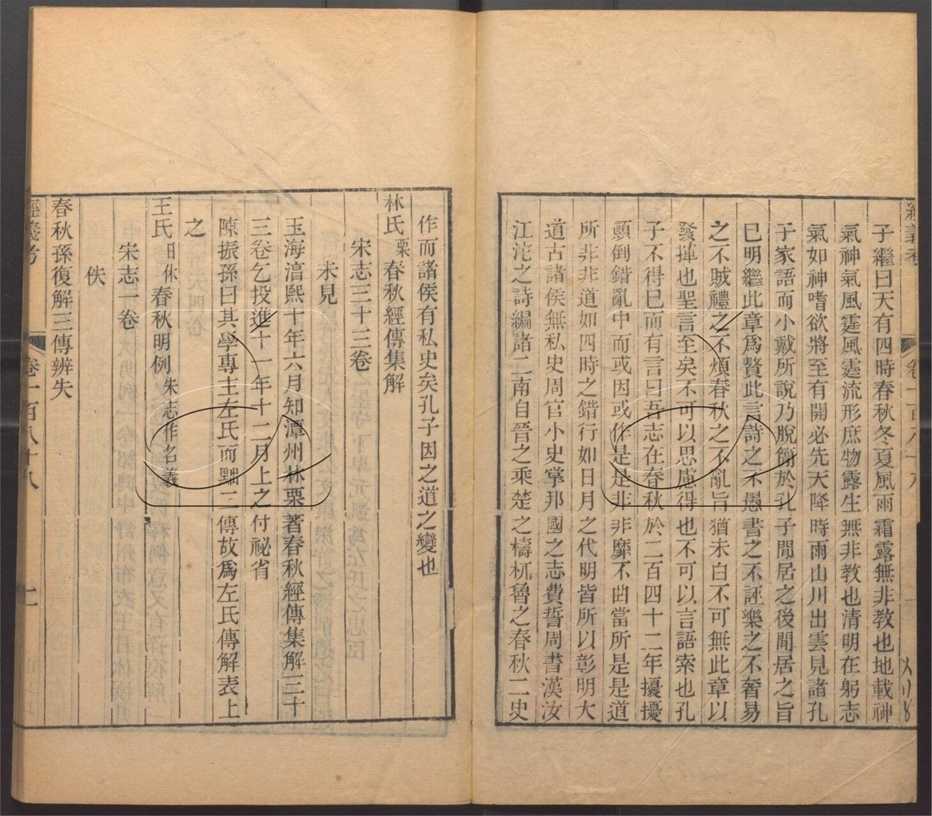 子繼曰天有四時春秋冬夏風雨霜露無非教也地載神
氣神氣風霆風霆流形庶物露生無非教也清明在躬志
氣如神嗜欲將至有開必先天降時雨山川出雲見諸孔
子家語而小戴所說乃脫簡於孔子閒居之後閒居之旨
已明繼此章爲贅此言詩之不愚書之不誣樂之不奢易
之不賊禮之不煩春秋之不亂旨猶未白不可無此章以
發揮也聖言至矣不可以思慮得也不可以言語索也孔
子不得已而有言曰吾志在春秋於二百四十二年擾擾
顛倒錯亂中而或因或作是是非非靡不曲當所是是道
所非非道如四時之錯行如日月之代明皆所以彰明大
道古諸侯無私史周官小史掌邦國之志費誓周書漢汝
江沱之詩編諸二南自晉之乘楚之檮杌魯之春秋二史
作而諸侯有私史矣孔子因之道之變也
林氏栗春秋經傳集解
宋志三十三卷
未見
玉海淳熙十年六月知潭州林栗著春秋經傳集解三十
三卷乞投進十一年十二月上之付祕省
陳振孫曰其學專主左氏而黜二傳故爲左氏傳解表上
之
王氏日休春秋明例宋志作名義
宋志一卷
佚
春秋孫復解三傳辨失
經義考 卷一百八十八